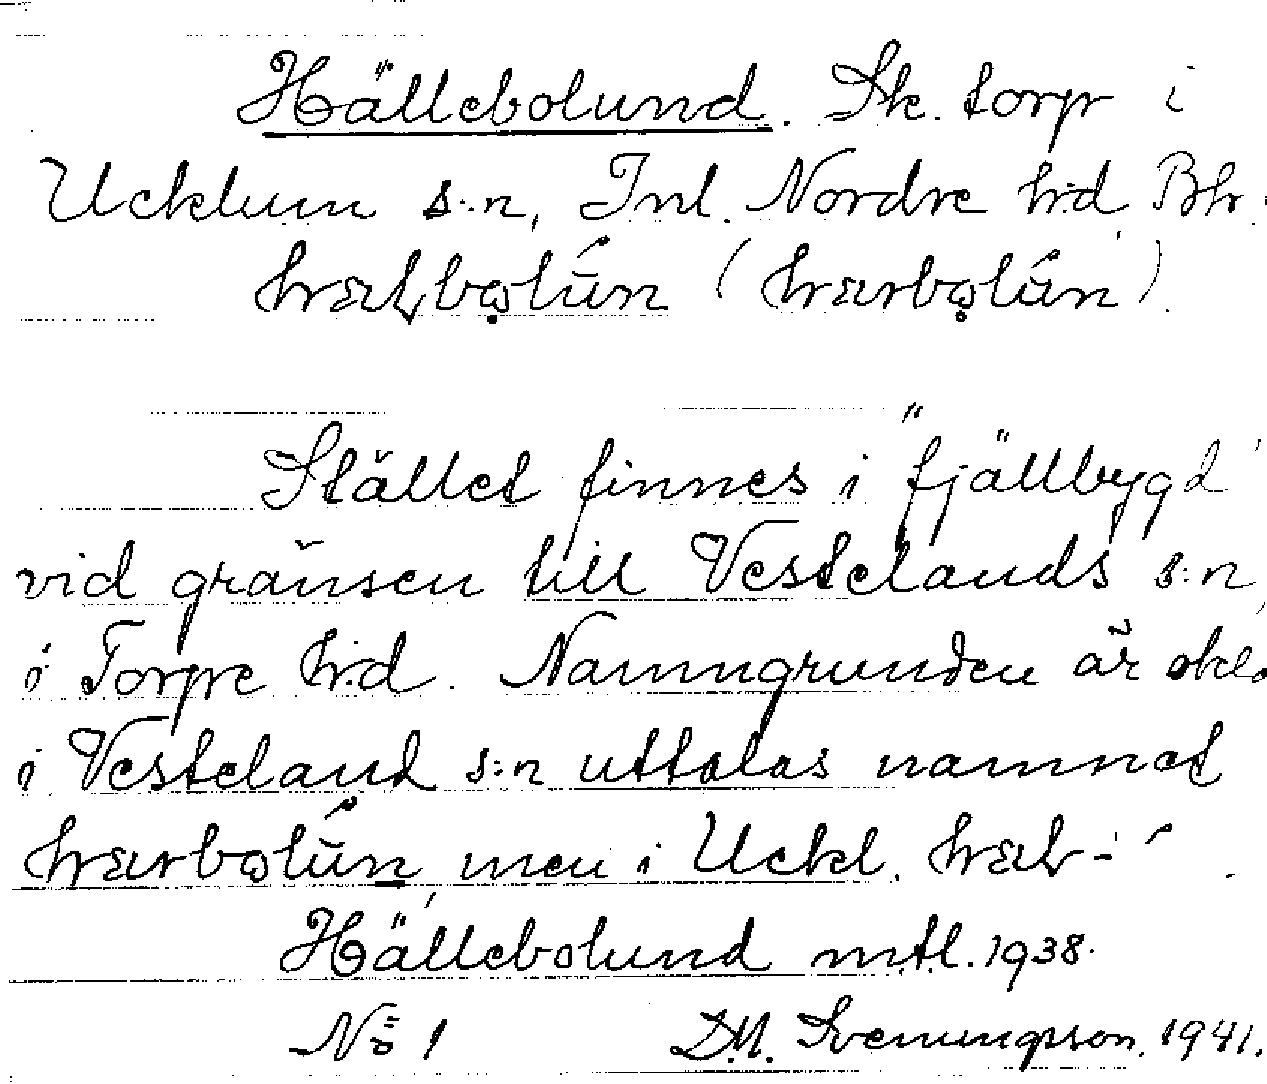 Hällebolund. Sk. torp i
Ucklum s:n, Inl. Nordre h:d Bhr.
Stället finnes i "fjällbygd"
vid gränsen till Vestelands s:n
i Torpe h:d. Namngrunden är
i Vesteland s:n uttalas namnet
men i Uckl.
Hällebolund mtl. 1938.
No 1 D.M. Svenungsson. 1941.